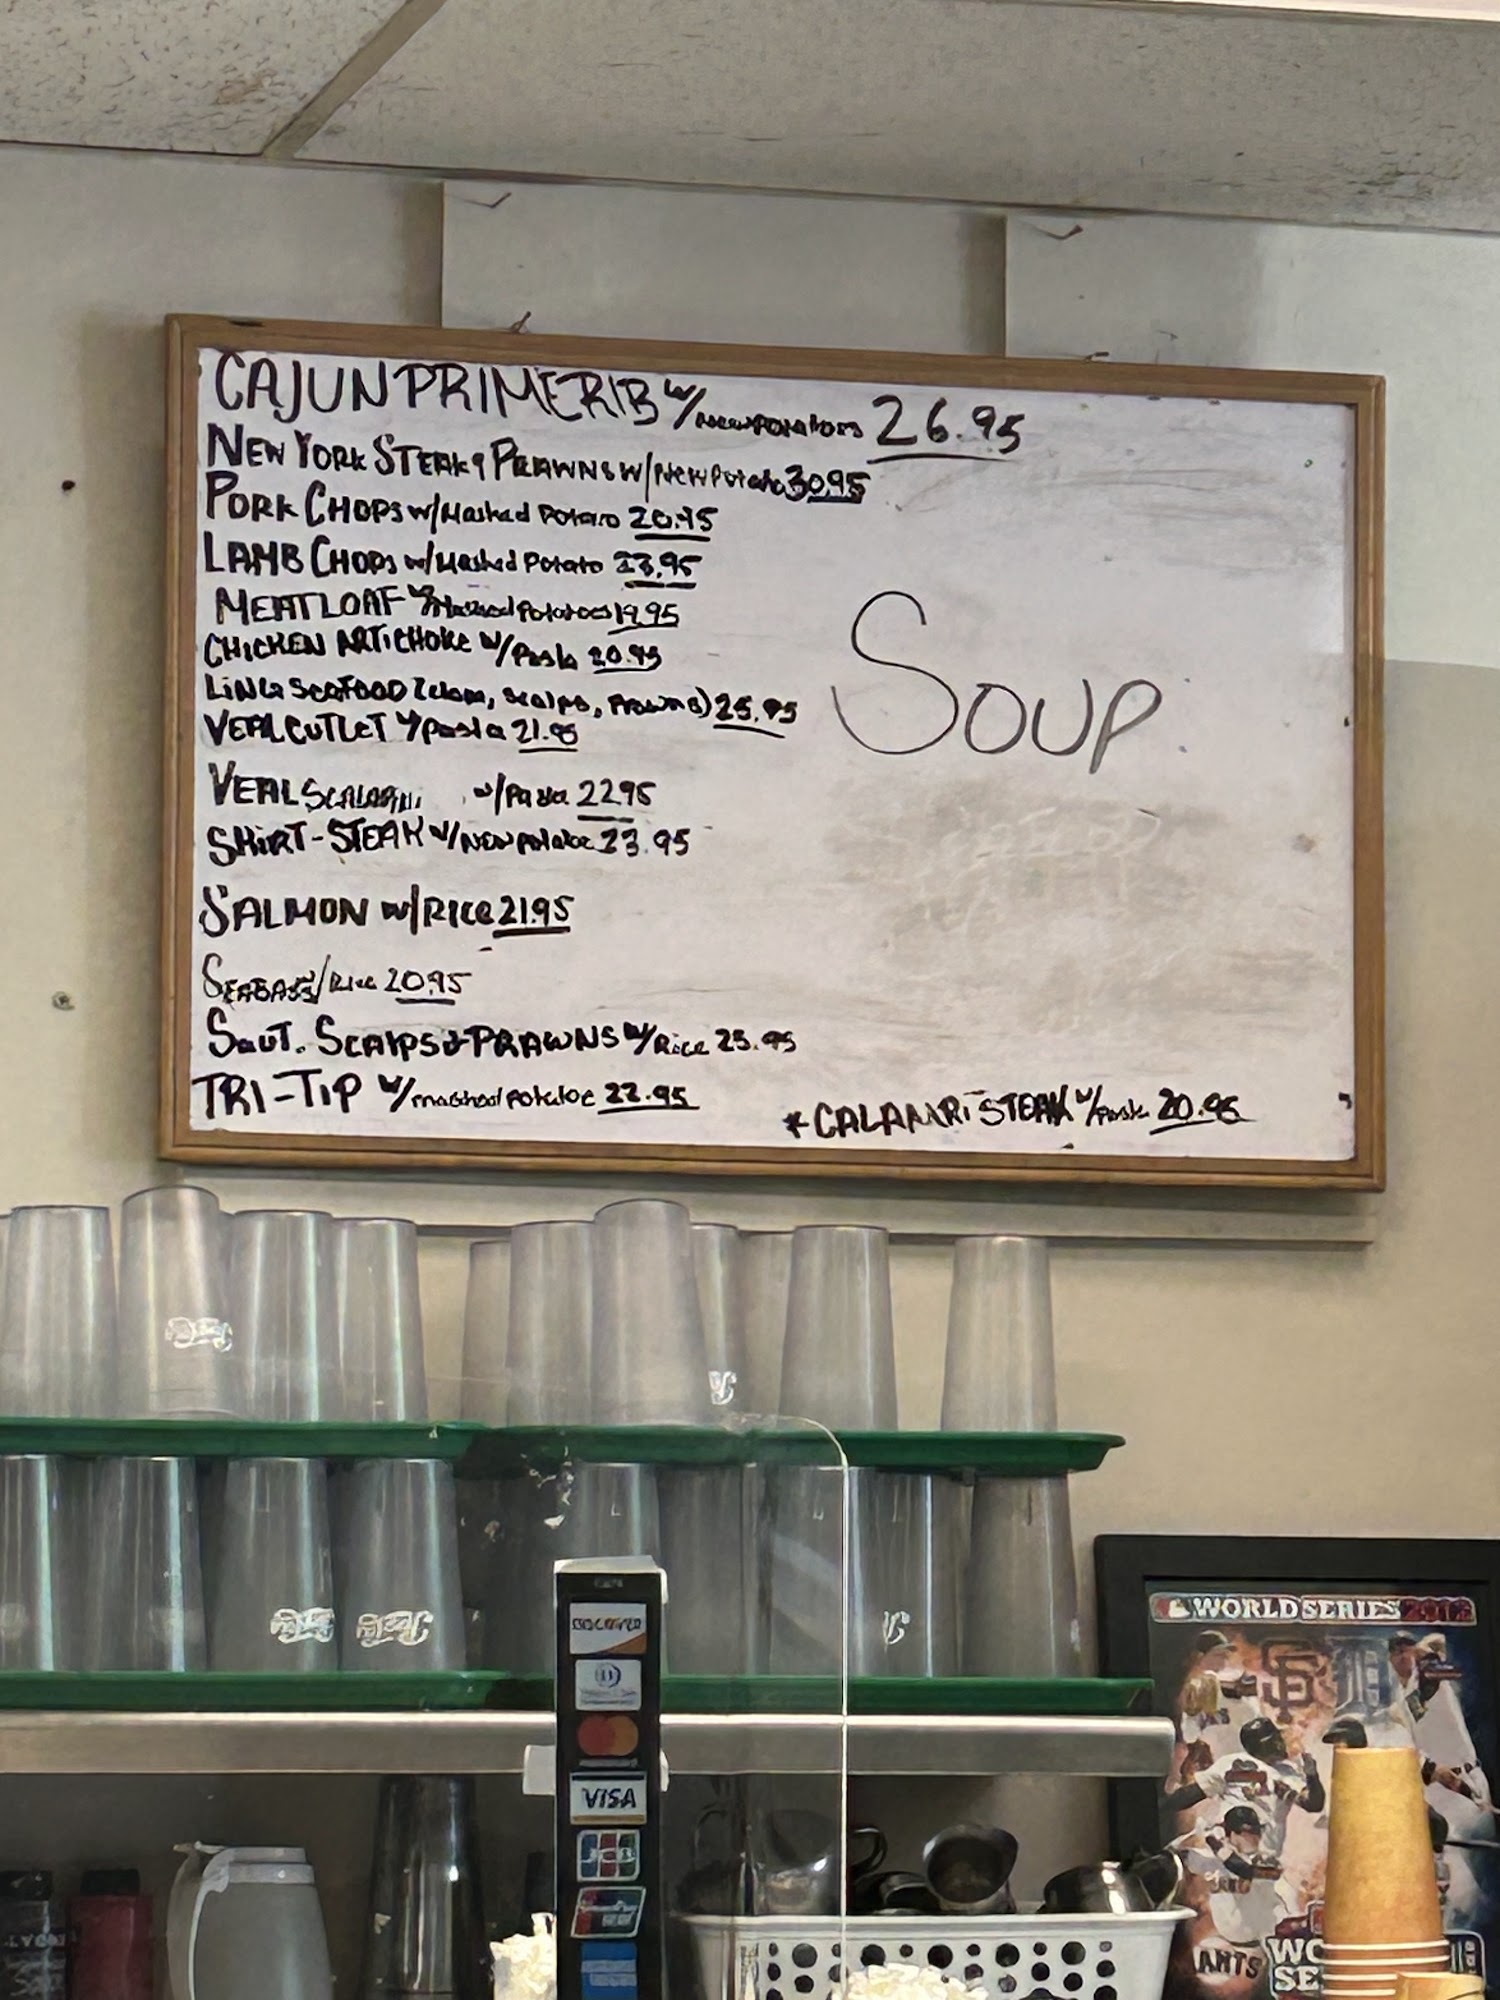 CAJUN PRIME RIB w/New Potatoes 26.95
NEW YORK STEAK & PRAWNS w/New Potato 30.95
PORK CHOPS w/Mashed Potato 20.95
LAMB CHOPS w/Mashed Potato 23.95
MEATLOAF w/Mashed Potatoes 19.95
CHICKEN ARTICHOKE w/Pasta 20.95
LING SEAFOOD (clam, scalps, Prawns) 25.95
VEAL CUTLET w/Pasta 21.95
VEAL w/Pasta 22.95
SKIRT-STEAK w/New Potatoe 23.95
SALMON w/RICE 21.95
SEABASS w/Rice 20.95
SAUT. SCALPS & PRAWNS w/Rice 25.95
TRI-TIP w/mashed Potatoe 22.95
SOUP.
*CALAMARI STEAK w/Pasta 20.95
DISCOVER
VISA
WORLD SERIES 2012
SF